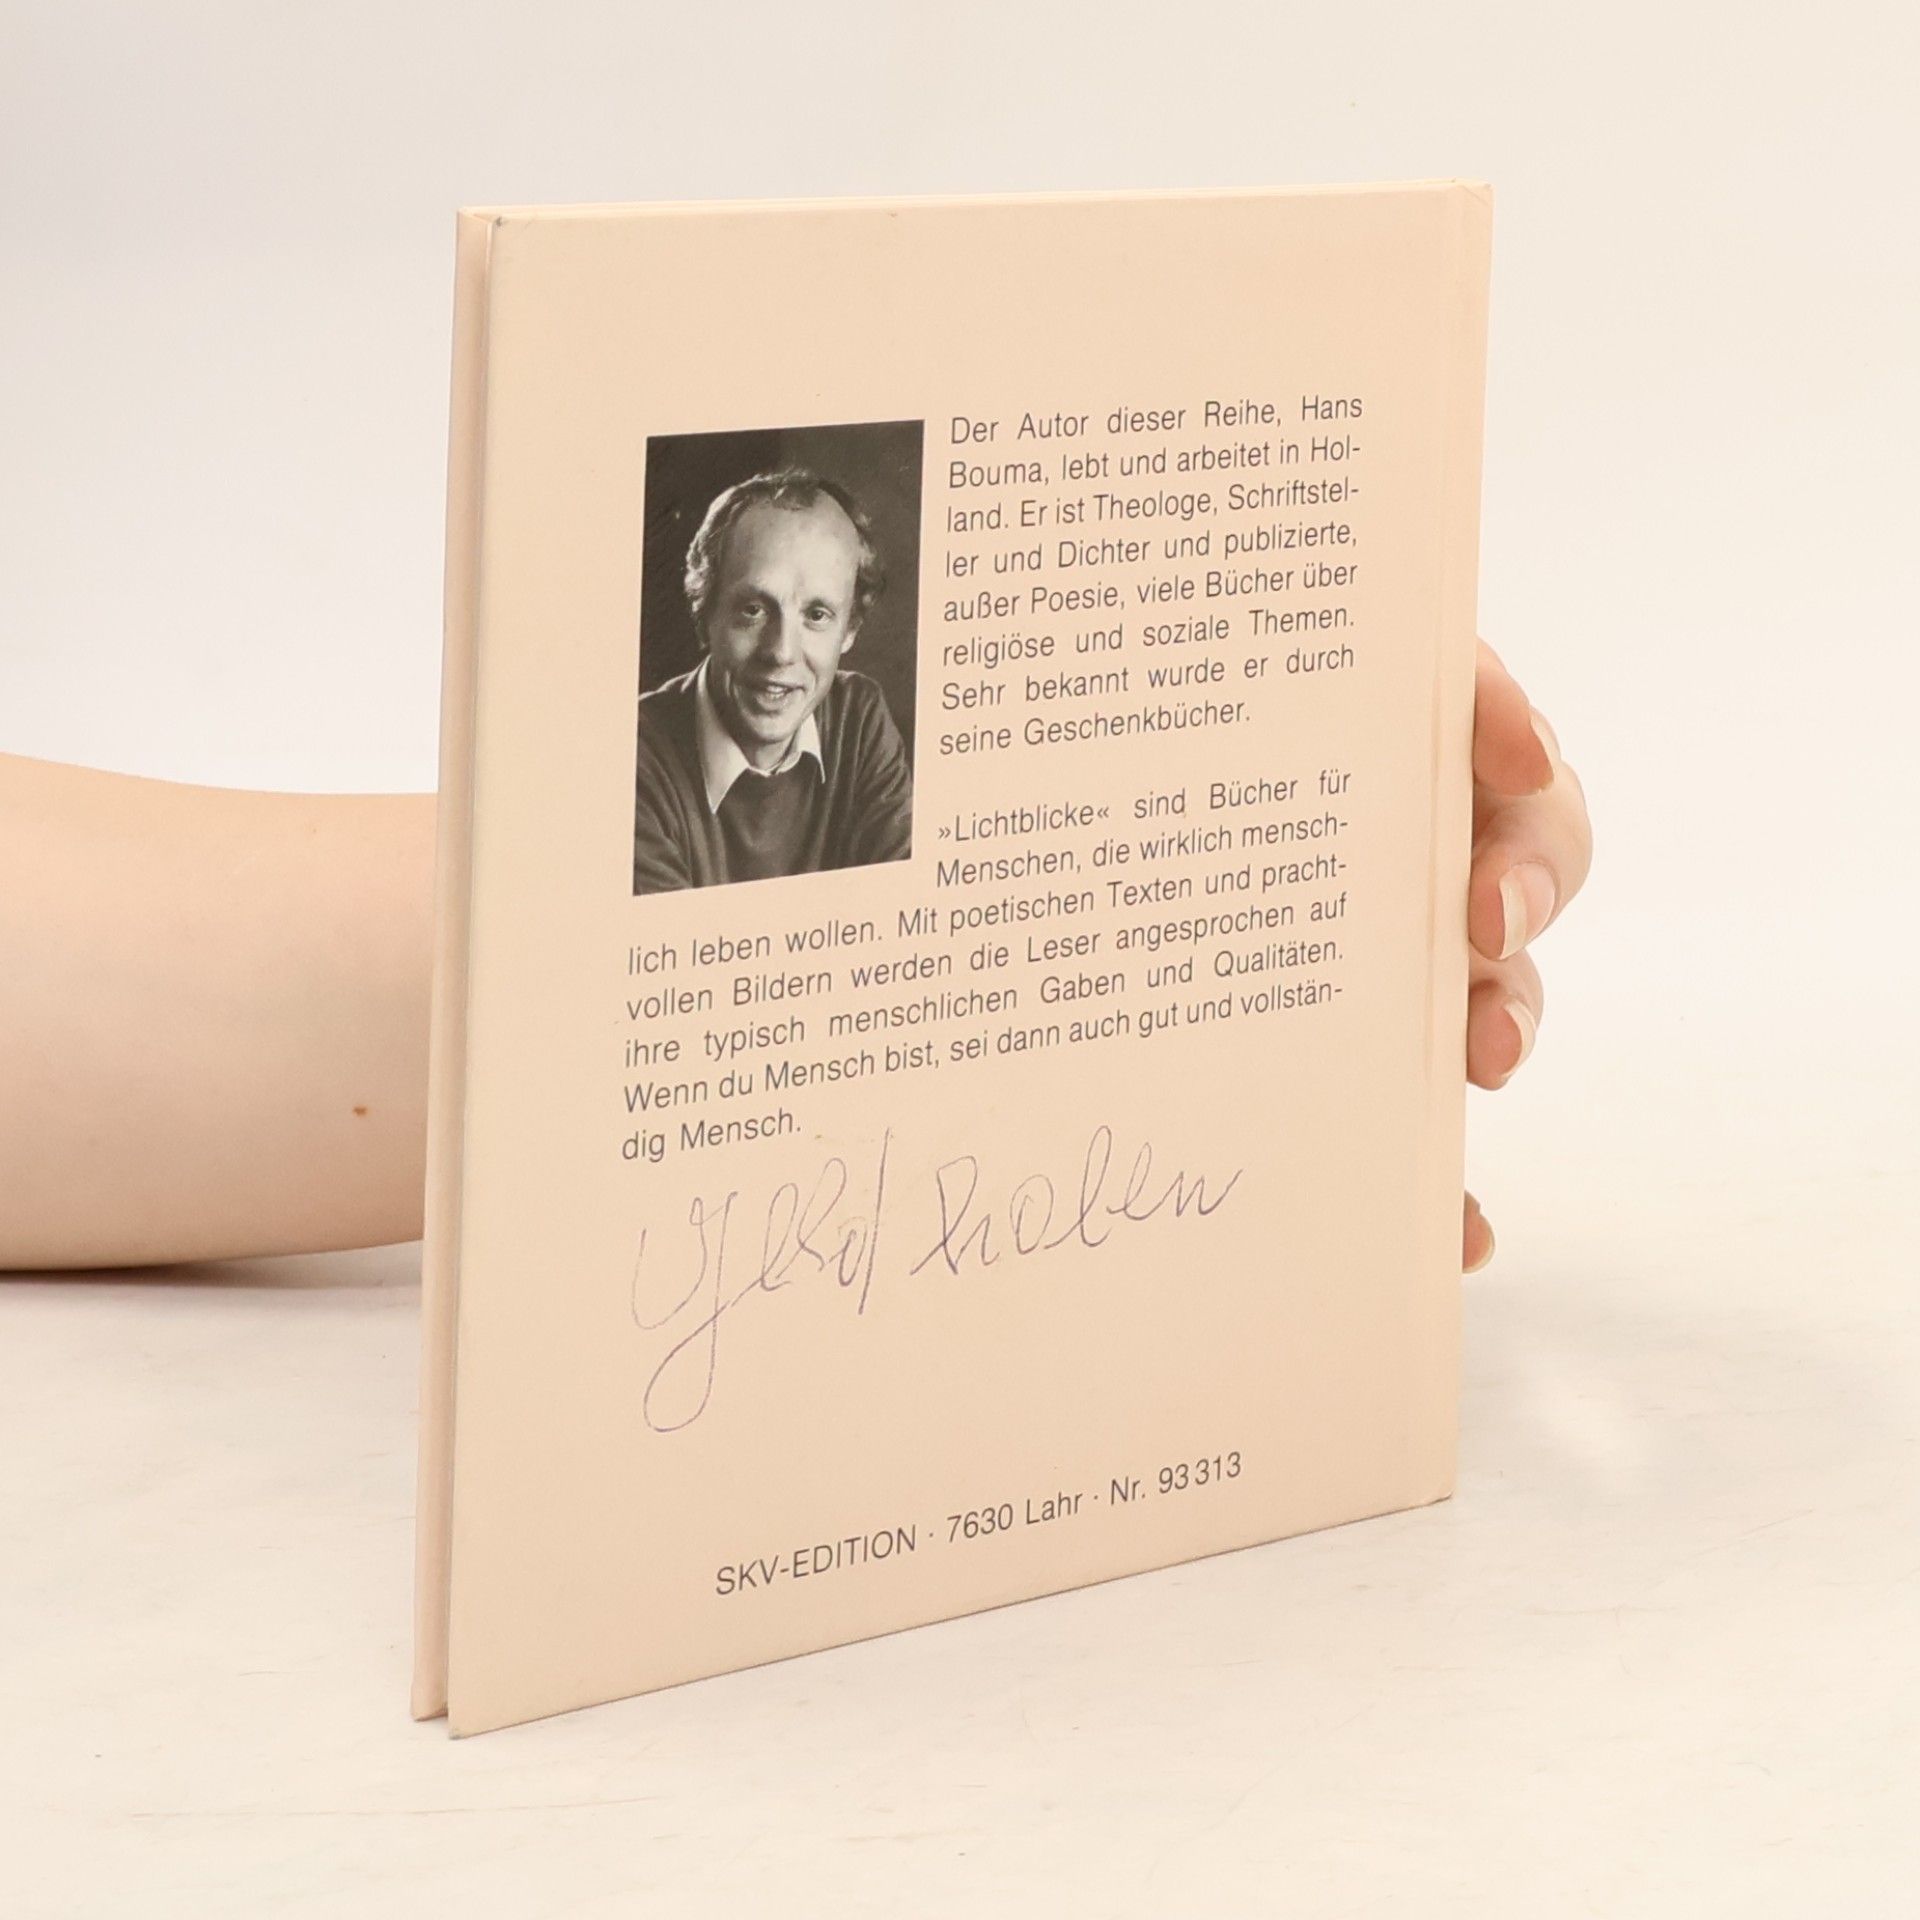 Der Autor dieser Reihe, Hans
Bouma, lebt und arbeitet in Hol-
land. Er ist Theologe, Schriftstel-
ler und Dichter und publizierte,
außer Poesie, viele Bücher über
religiöse und soziale Themen.
Sehr bekannt wurde er durch
seine Geschenkbücher.
»Lichtblicke« sind Bücher für
Menschen, die wirklich mensch-
lich leben wollen. Mit poetischen Texten und pracht-
vollen Bildern werden die Leser angesprochen auf
ihre typisch menschlichen Gaben und Qualitäten.
Wenn du Mensch bist, sei dann auch gut und vollstän-
dig Mensch.
SKV-EDITION · 7630 Lahr · Nr. 93 313